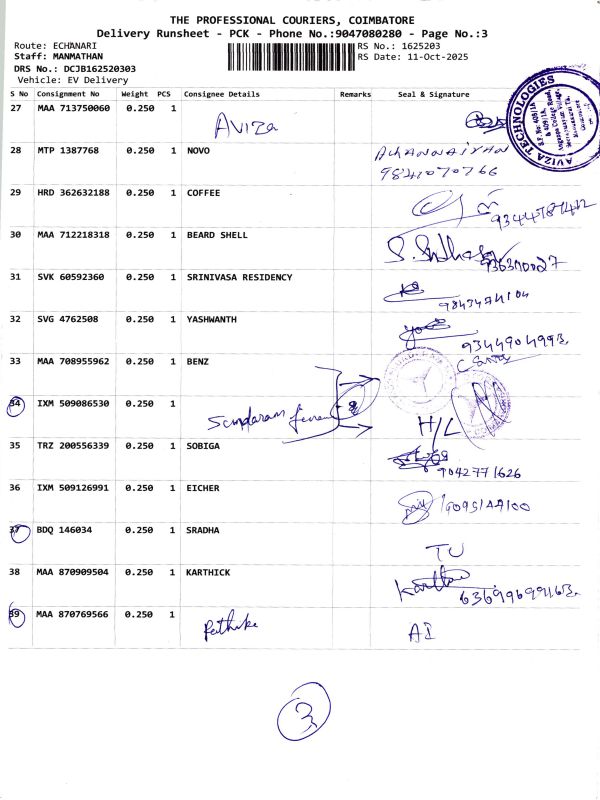 THE PROFESSIONAL COURIERS, COIMBATORE
Delivery Runsheet - PCK - Phone No.:9047080280 - Page No.:3
Route: ECHANARI
RS No.: 1625203
Staff: MANMATHAN
RS Date: 11-Oct-2025
DRS No.: DCJB162520303
Vehicle: EV Delivery
S No Consignment No Weight PCS Consignee Details Remarks Seal & Signature
27 MAA 713750060 0.250 1 AVIZA
AVIZA TECHNOLOGIES
28 MTP 1387768 0.250 1 NOVO
9841070766
29 HRD 362632188 0.250 1 COFFEE
30 MAA 712218318 0.250 1 BEARD SHELL
31 SVK 60592360 0.250 1 SRINIVASA RESIDENCY
32 SVG 4762508 0.250 1 YASHWANTH
33 MAA 708955962 0.250 1 BENZ
34 IXM 509086530 0.250 1
Sundaram
H/L
35 TRZ 200556339 0.250 1 SOBIGA
9042771626
36 IXM 509126991 0.250 1 EICHER
37 BDQ 146034 0.250 1 SRADHA
TU
38 MAA 870909504 0.250 1 KARTHICK
39 MAA 870769566 0.250 1
AI
3